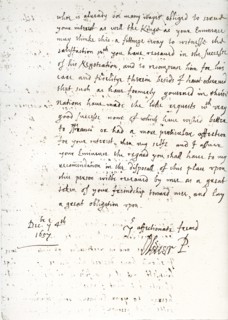 who is already in many ways obliged to
your interest as well the Kings as your Eminence
may thinke this a fitting way to witnesse that
satisfaction you have received in the successe
of his Negotiation, and to recompense him for his
care and fidelity therein
that such as have formerly governed in
nations have made the like requests with very
good successe none of which have wished better
to France or had a more particular affection
for your interest, then my selfe and I assure
your Eminence the regard you shall have to my
recommendation in the disposal of this place upon
this person will be received by mee as a great
token of your friendship toward mee, and lay
a great obligation upon
Dec. 4th
1657
Yr affectionate friend
Oliver P.